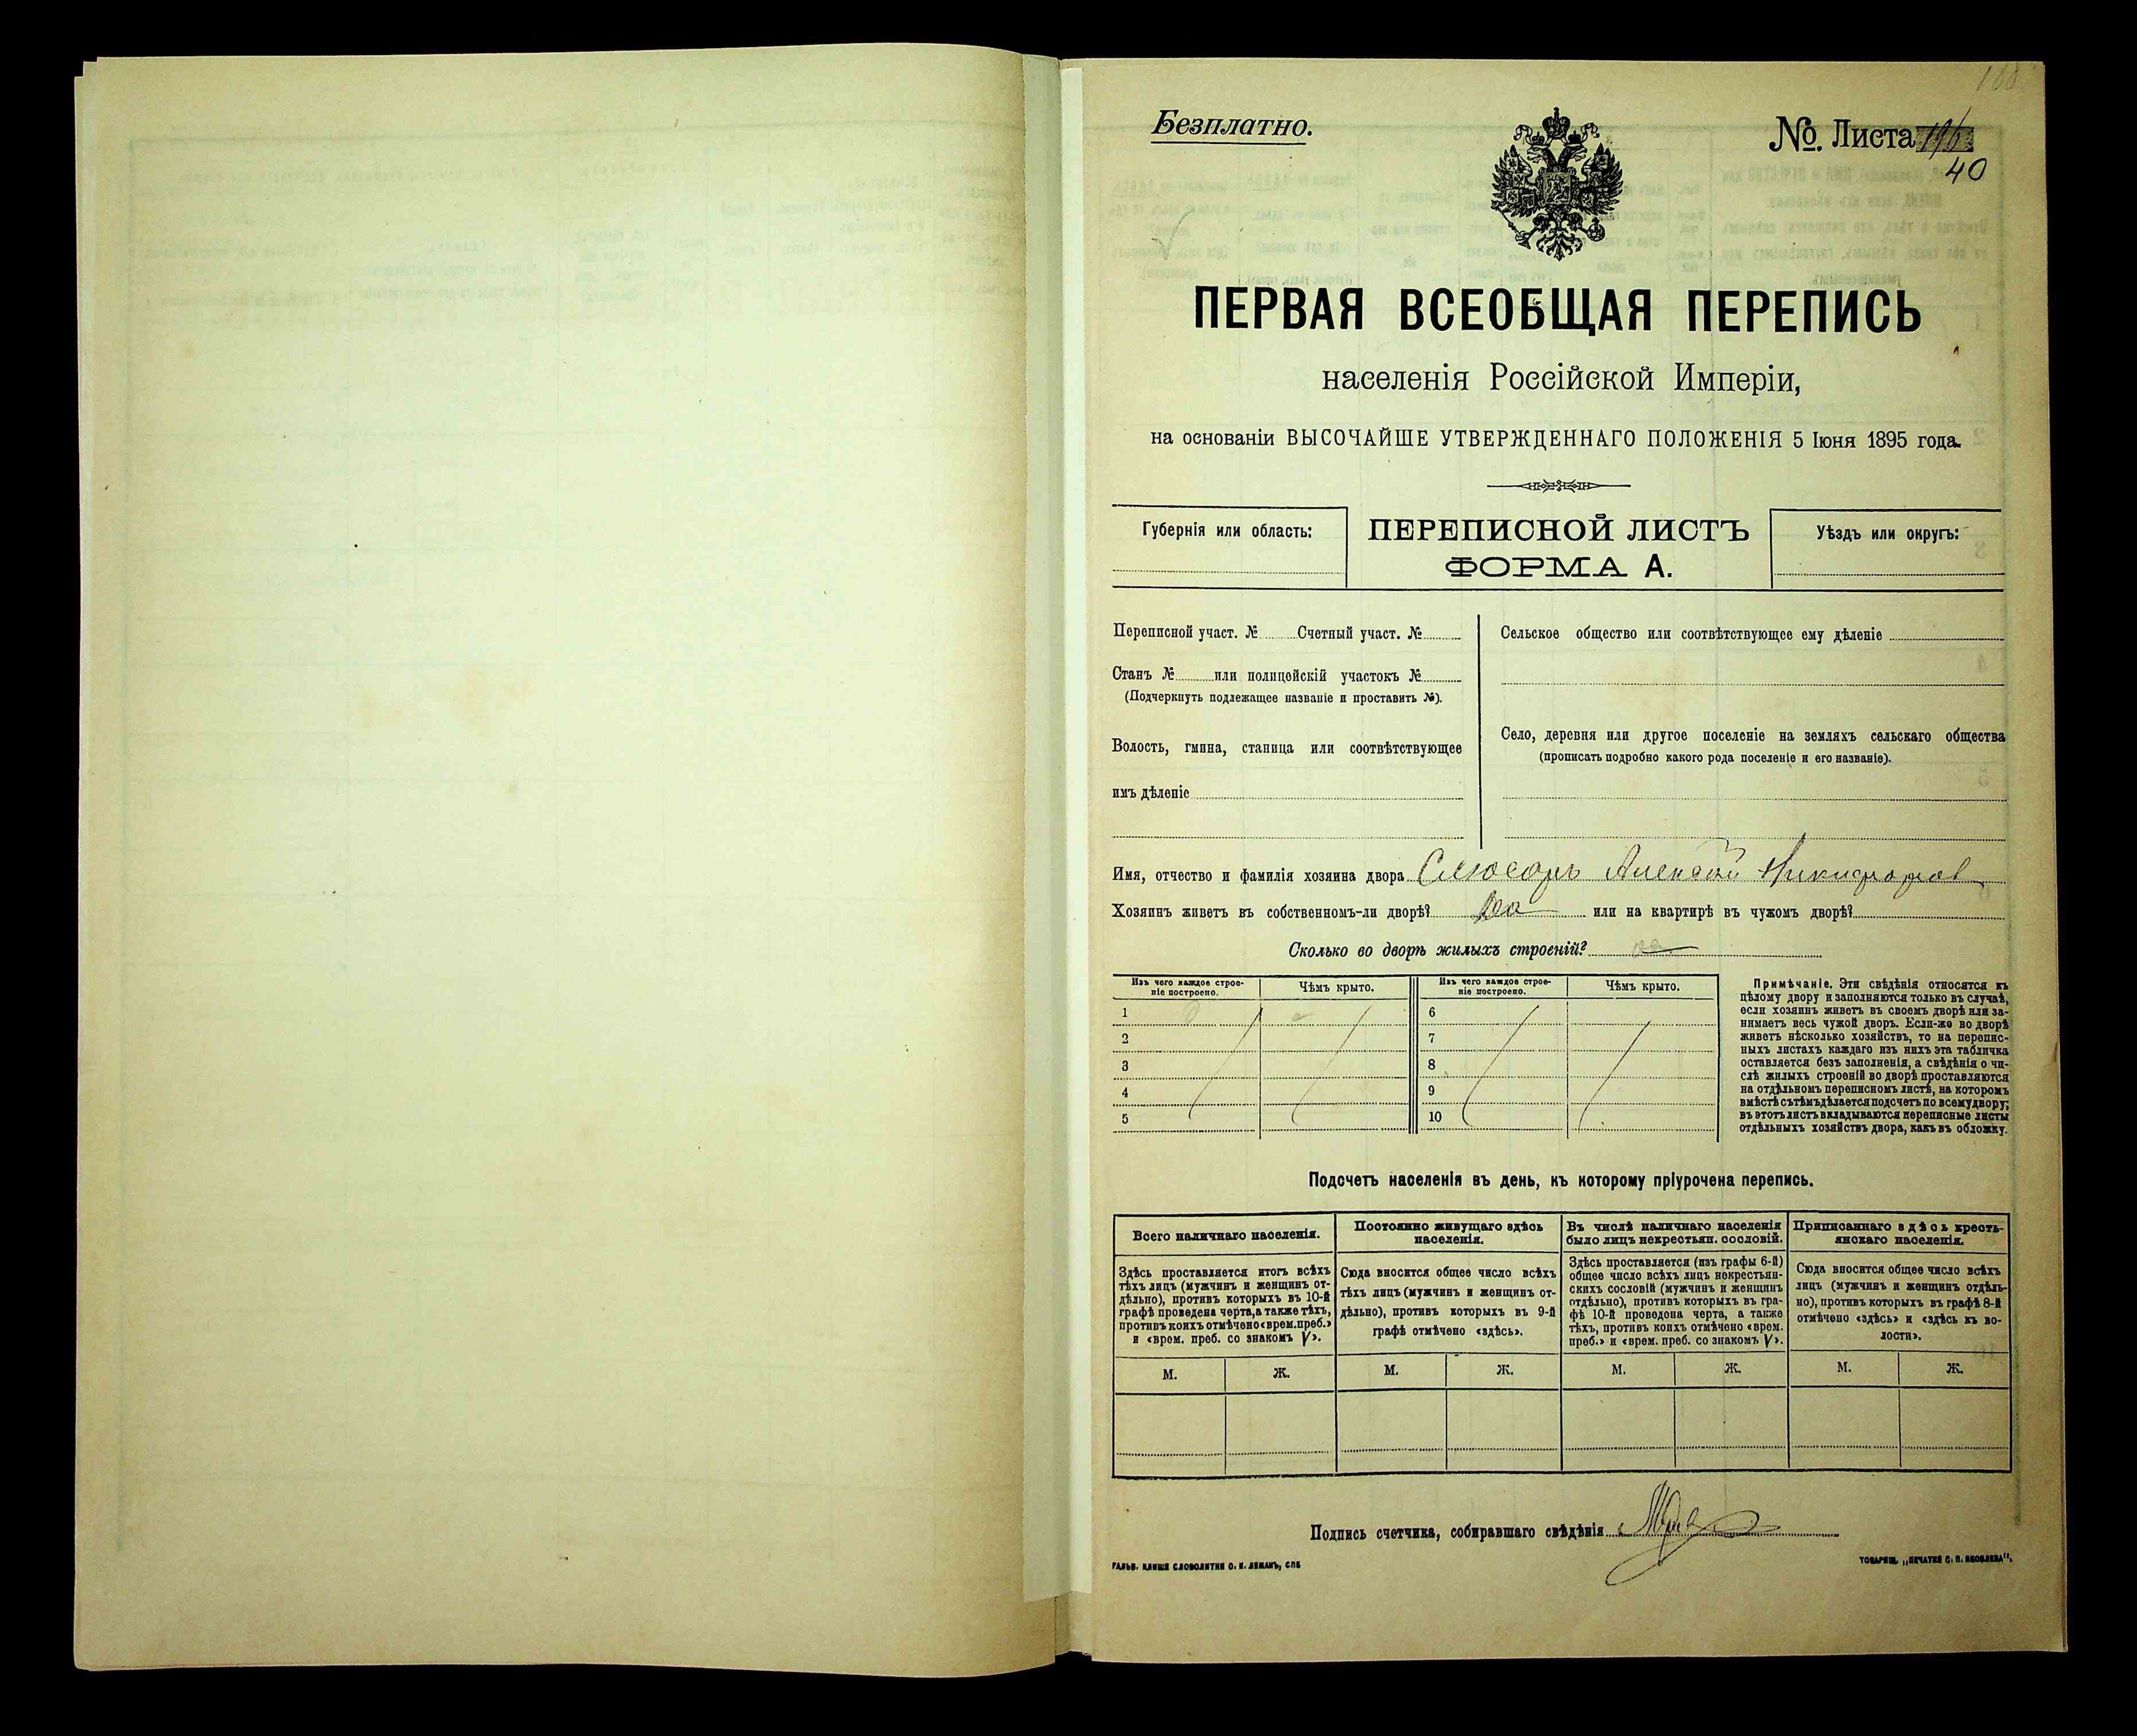 100
Безплатно.
№. Листа 196
40
ПЕРВАЯ ВСЕОБЩАЯ ПЕРЕПИСЬ
населенія Россійской Имперіи,
на основаніи ВЫСОЧАЙШЕ УТВЕРЖДЕННАГО ПОЛОЖЕНІЯ 5 Іюня 1895 года.
Губернія или область:
ПЕРЕПИСНОЙ ЛИСТЪ
ФОРМА А.
Уѣздъ или округъ:
Переписной участ. № Счетный участ. №
Станъ № или полицейскій участокъ №
(Подчеркнуть подлежащее названіе и проставить №).
Волость, гмина, станица или соотвѣтствующее
имъ дѣленіе
Сельское общество или соотвѣтствующее ему дѣленіе
Село, деревня или другое поселеніе на земляхъ сельскаго общества
(прописать подробно какого рода поселеніе и его названіе).
Имя, отчество и фамилія хозяина двора Слюсарь Алексѣй Никифоров
Хозяинъ живетъ въ собственномъ-ли дворѣ? Да или на квартирѣ въ чужомъ дворѣ?
Сколько во дворѣ жилыхъ строеній?
Изъ чего каждое строе-
ніе построено.
Чѣмъ крыто.
1
2
3
4
5
Изъ чего каждое строе-
ніе построено.
Чѣмъ крыто.
6
7
8
9
10
Примѣчаніе. Эти свѣдѣнія относятся къ
цѣлому двору и заполняются только въ случаѣ,
если хозяинъ живетъ въ своемъ дворѣ или за-
нимаетъ весь чужой дворъ. Если-же во дворѣ
живетъ нѣсколько хозяйствъ, то на перепис-
ныхъ листахъ каждаго изъ нихъ эта табличка
оставляется безъ заполненія, а свѣдѣнія о чи-
слѣ жилыхъ строеній во дворѣ проставляются
на отдѣльномъ переписномъ листѣ, на которомъ
вмѣстѣ съ тѣмъ дѣлается подсчетъ по всему двору;
въ этотъ листъ вкладываются переписные листы
отдѣльныхъ хозяйствъ двора, какъ въ обложку.
Подсчетъ населенія въ день, къ которому пріурочена перепись.
Всего наличнаго населенія.
Здѣсь проставляется итогъ всѣхъ
тѣхъ лицъ (мужчинъ и женщинъ от-
дѣльно), противъ которыхъ въ 10-й
графѣ проведена черта, а также тѣхъ,
противъ коихъ отмѣчено «врем. преб.»
и «врем. преб. со знакомъ V».
М. Ж.
Постоянно живущаго здѣсь
населенія.
Сюда вносится общее число всѣхъ
тѣхъ лицъ (мужчинъ и женщинъ от-
дѣльно), противъ которыхъ въ 9-й
графѣ отмѣчено «здѣсь».
М. Ж.
Въ числѣ наличнаго населенія
было лицъ некрестьян. сословій.
Здѣсь проставляется (изъ графы 6-й)
общее число всѣхъ лицъ некрестьян-
скихъ сословій (мужчинъ и женщинъ
отдѣльно), противъ которыхъ въ гра-
фѣ 10-й проведена черта, а также
тѣхъ, противъ коихъ отмѣчено «врем.
преб.» и «врем. преб. со знакомъ V».
М. Ж.
Приписаннаго здѣсь кресть-
янскаго населенія.
Сюда вносится общее число всѣхъ
лицъ (мужчинъ и женщинъ отдѣль-
но), противъ которыхъ въ графѣ 8-й
отмѣчено «здѣсь» и «здѣсь къ во-
лости».
М. Ж.
Подпись счетчика, собиравшаго свѣдѣнія
ГАЛЬВ. КЛИШЕ СЛОВОЛИТНИ О. И. ЛЕМАНЪ, СПБ
ТОВАРИЩ. „ПЕЧАТНЯ С. П. ЯКОВЛЕВА“.